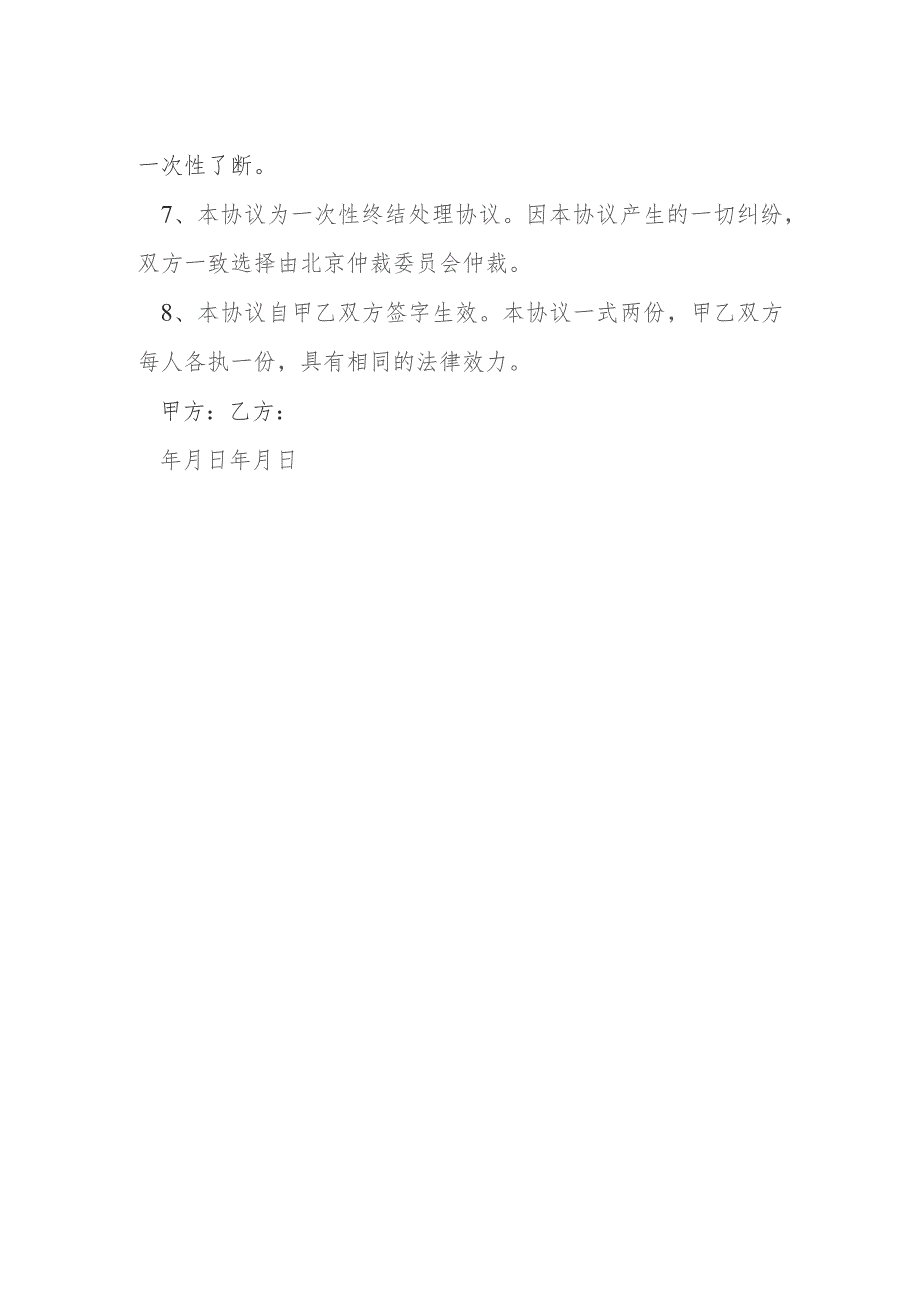 一次性了断。
7、本协议为一次性终结处理协议。因本协议产生的一切纠纷，
双方一致选择由北京仲裁委员会仲裁。
8、本协议自甲乙双方签字生效。本协议一式两份，甲乙双方
每人各执一份，具有相同的法律效力。
甲方：乙方：
年月日年月日